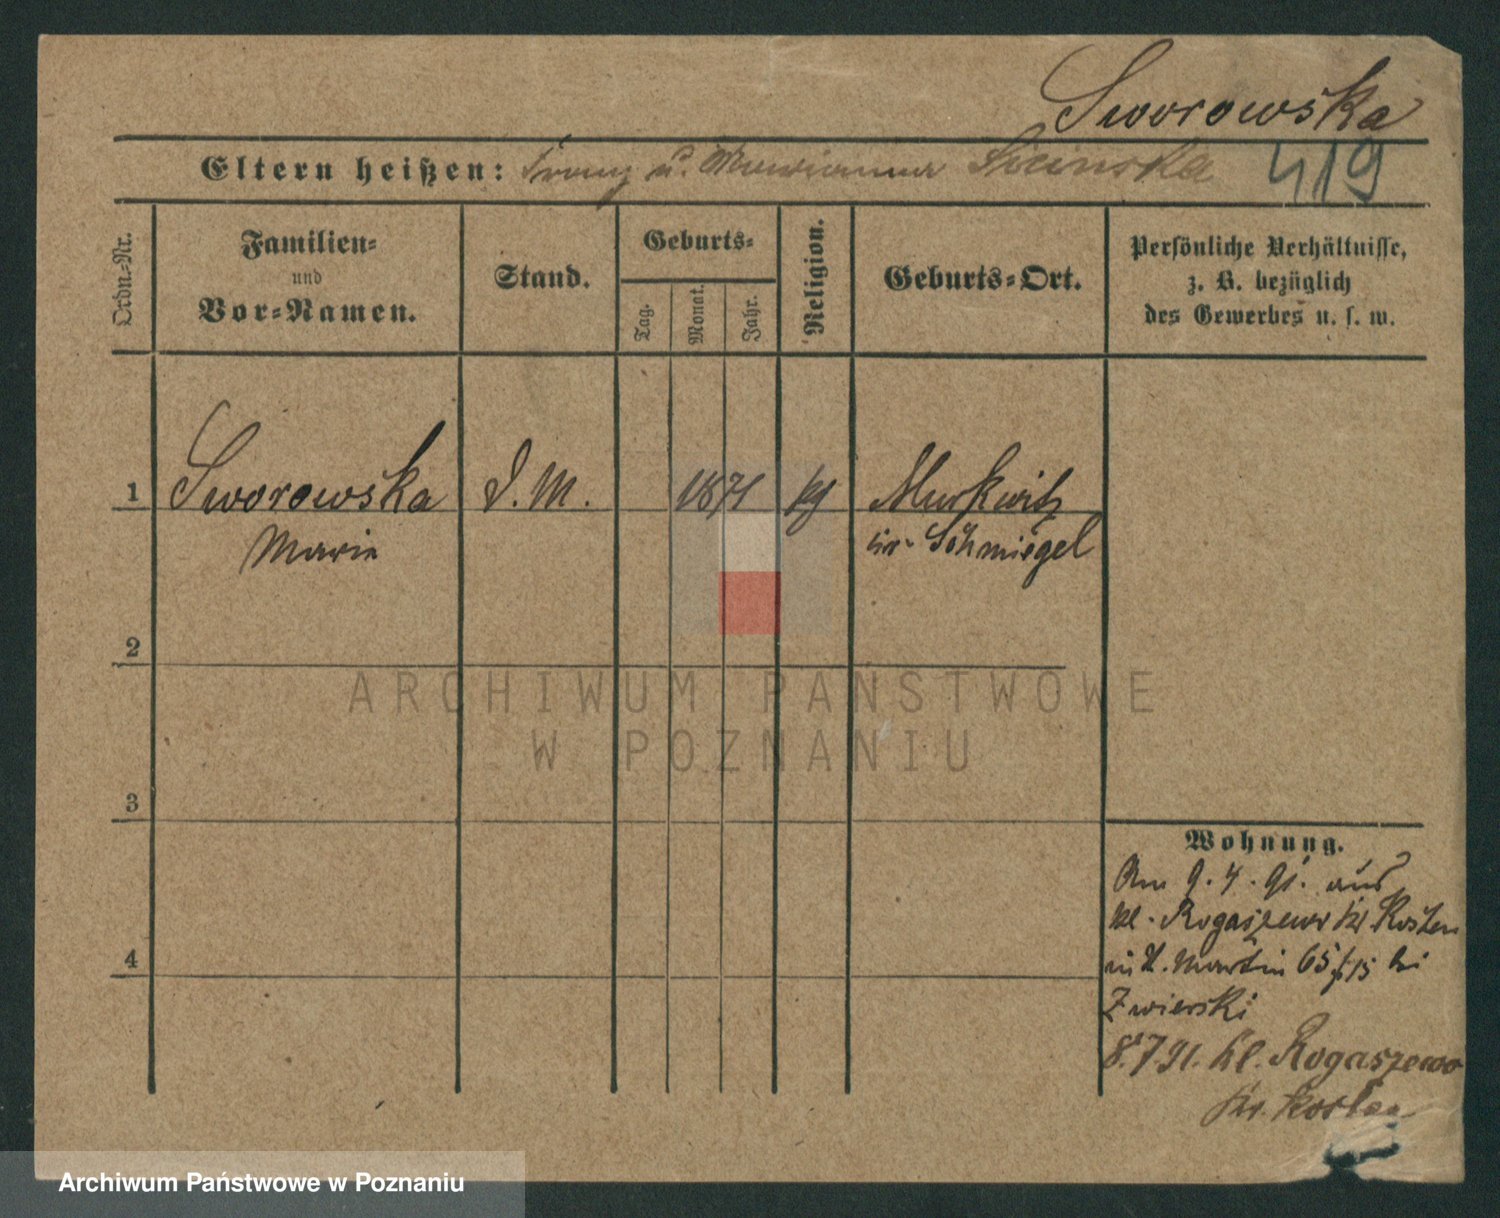 Sworowska
419
Eltern heißen: Franz u. Marianna Sicinska
Ordn.-Nr.
Familien-
und
Vor-Namen.
Stand.
Geburts-
Tag.
Monat.
Jahr.
Religion.
Geburts-Ort.
Persönliche Verhältnisse,
z. B. bezüglich
des Gewerbes u. s. w.
1 Sworowska D. M. 1871 kg Murkwitz
Marie Kr. Schmiegel
2
3
4
Wohnung.
Am 9.4.91. aus
Kl. Rogaszewo Kr. Kosten
in St. Martin 65/15 bei
Zwierski
8.7.91. Kl. Rogaszewo
Kr. Kosten
ARCHIWUM PAŃSTWOWE
W POZNANIU
Archiwum Państwowe w Poznaniu